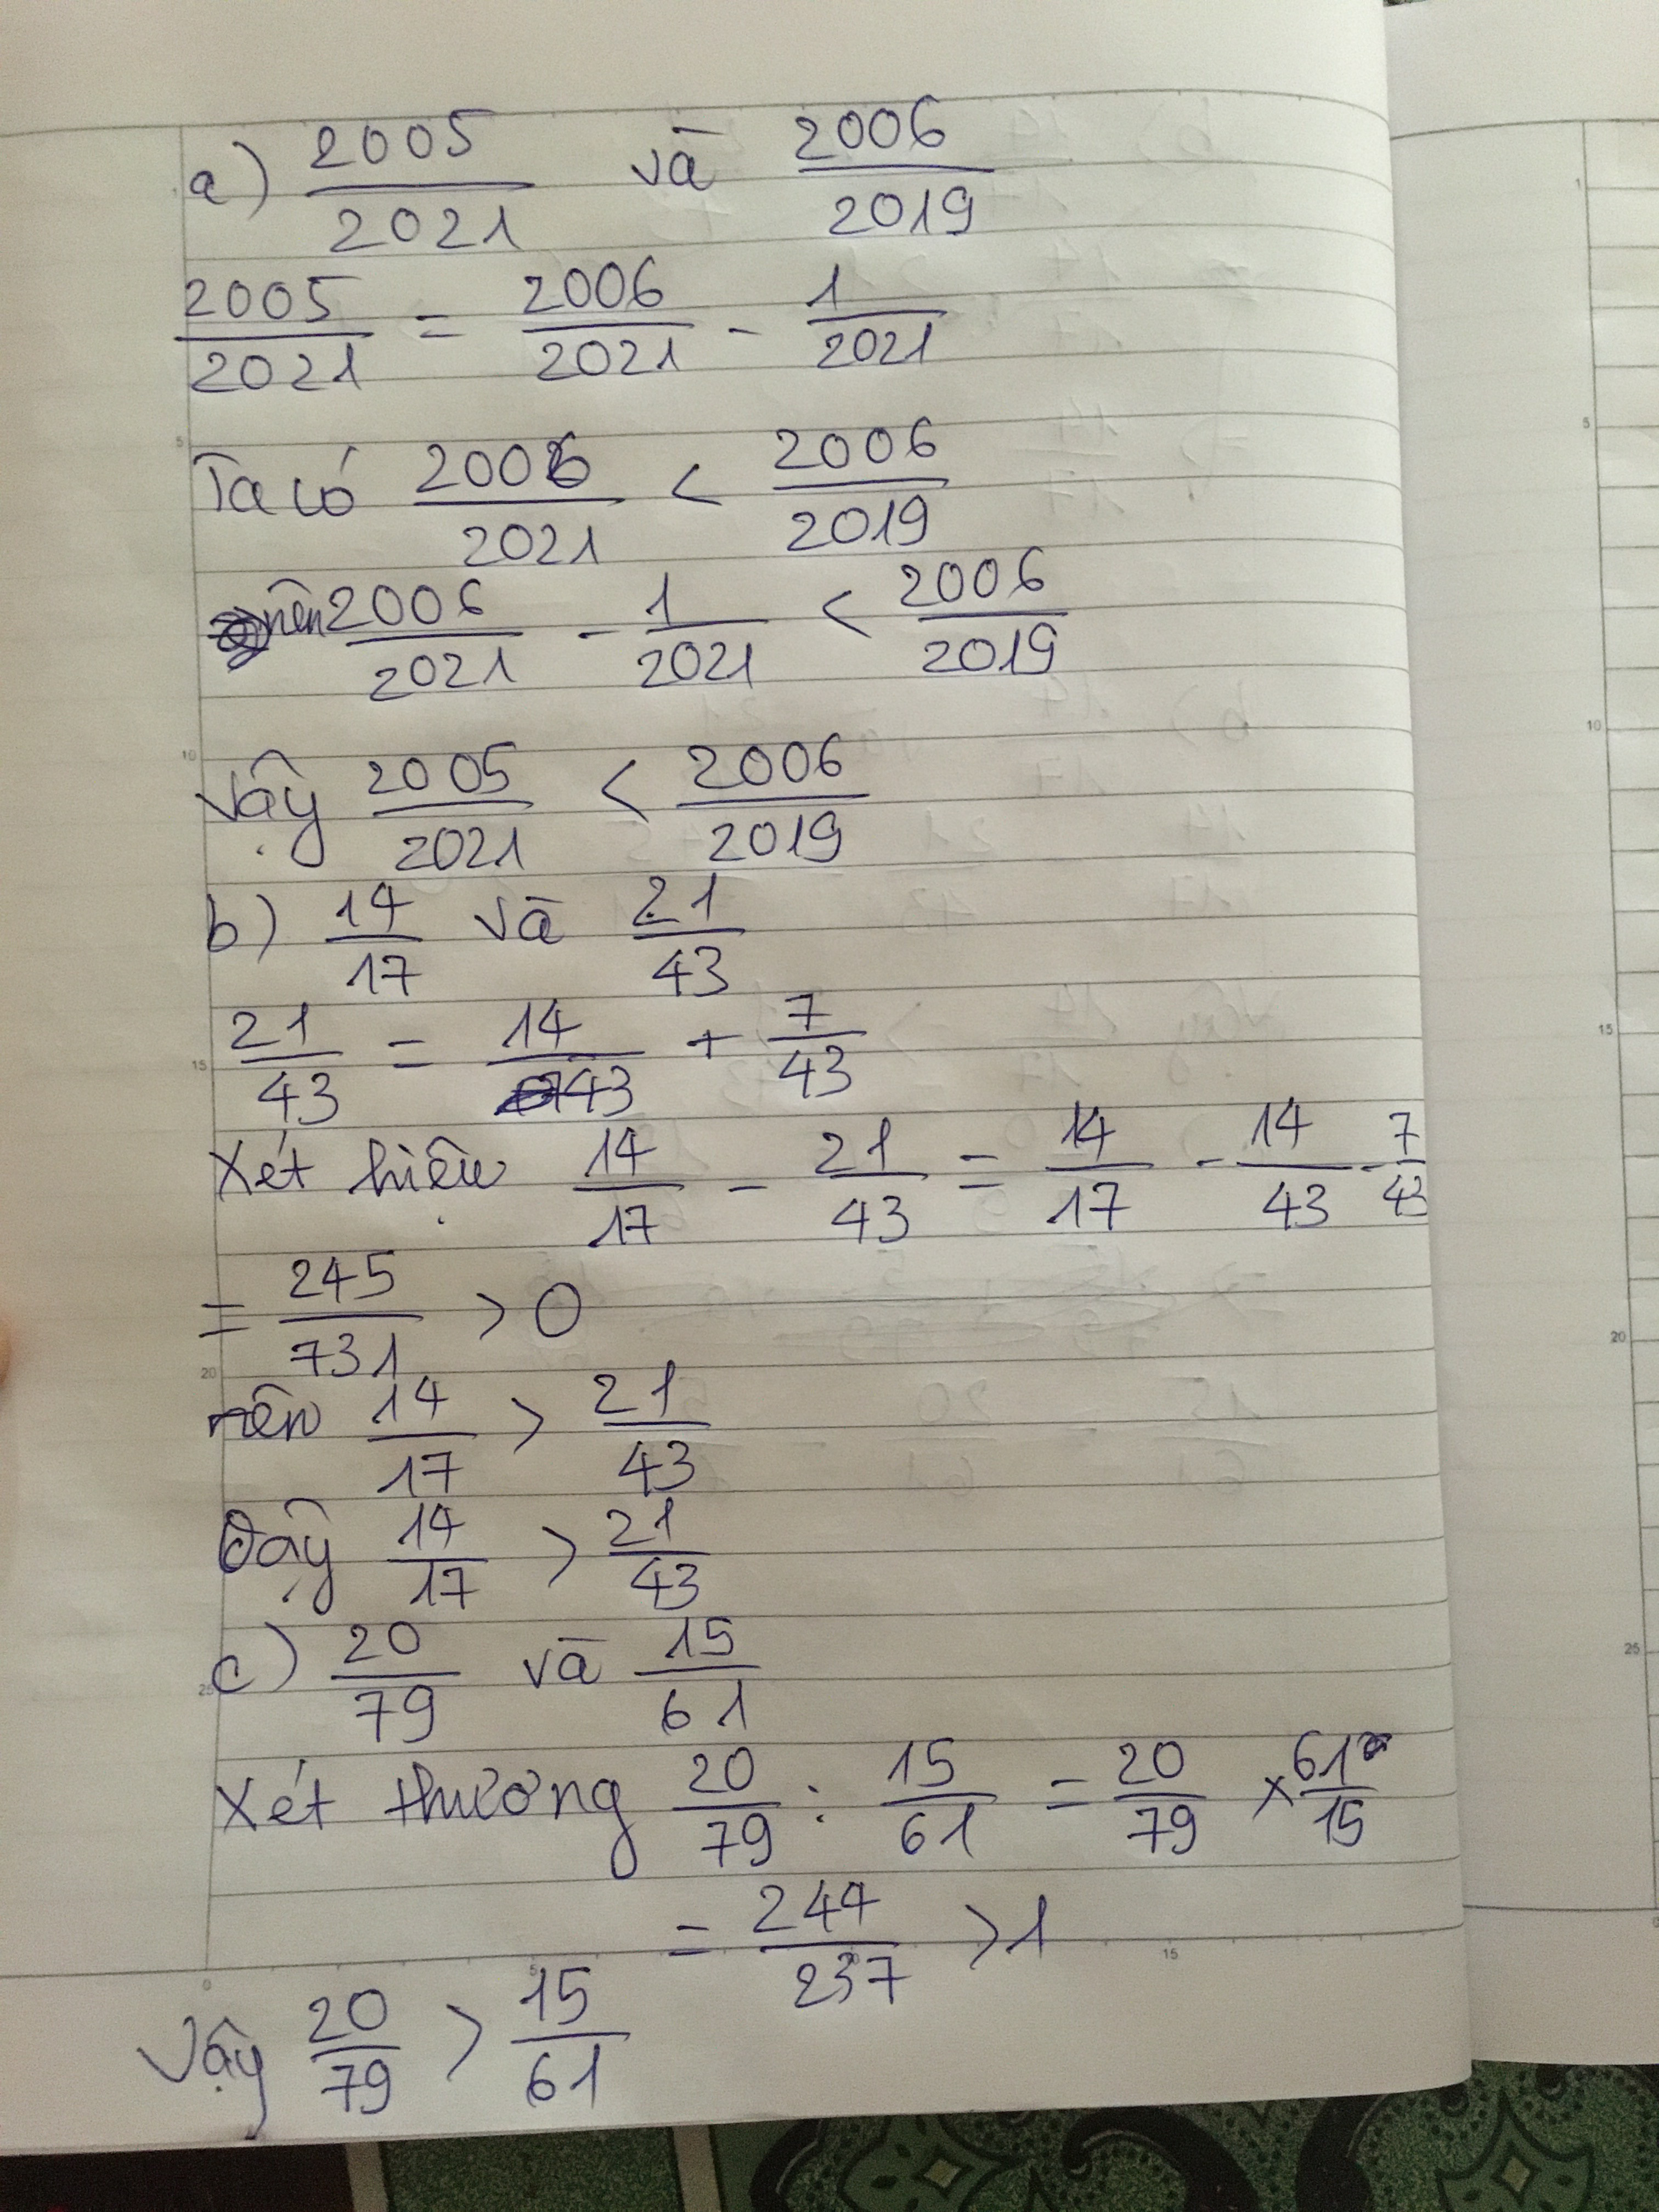 a) 2005/2021 và 2006/2019
2005/2021 = 2006/2021 - 1/2021
Ta có 2006/2021 < 2006/2019
nên 2006/2021 - 1/2021 < 2006/2019
Vậy 2005/2021 < 2006/2019
b) 14/17 và 21/43
21/43 = 14/43 + 7/43
Xét hiệu 14/17 - 21/43 = 14/17 - 14/43 - 7/43
= 245/731 > 0
nên 14/17 > 21/43
Vậy 14/17 > 21/43
c) 20/79 và 15/61
Xét thương 20/79 : 15/61 = 20/79 × 61/15
= 244/237 > 1
Vậy 20/79 > 15/61